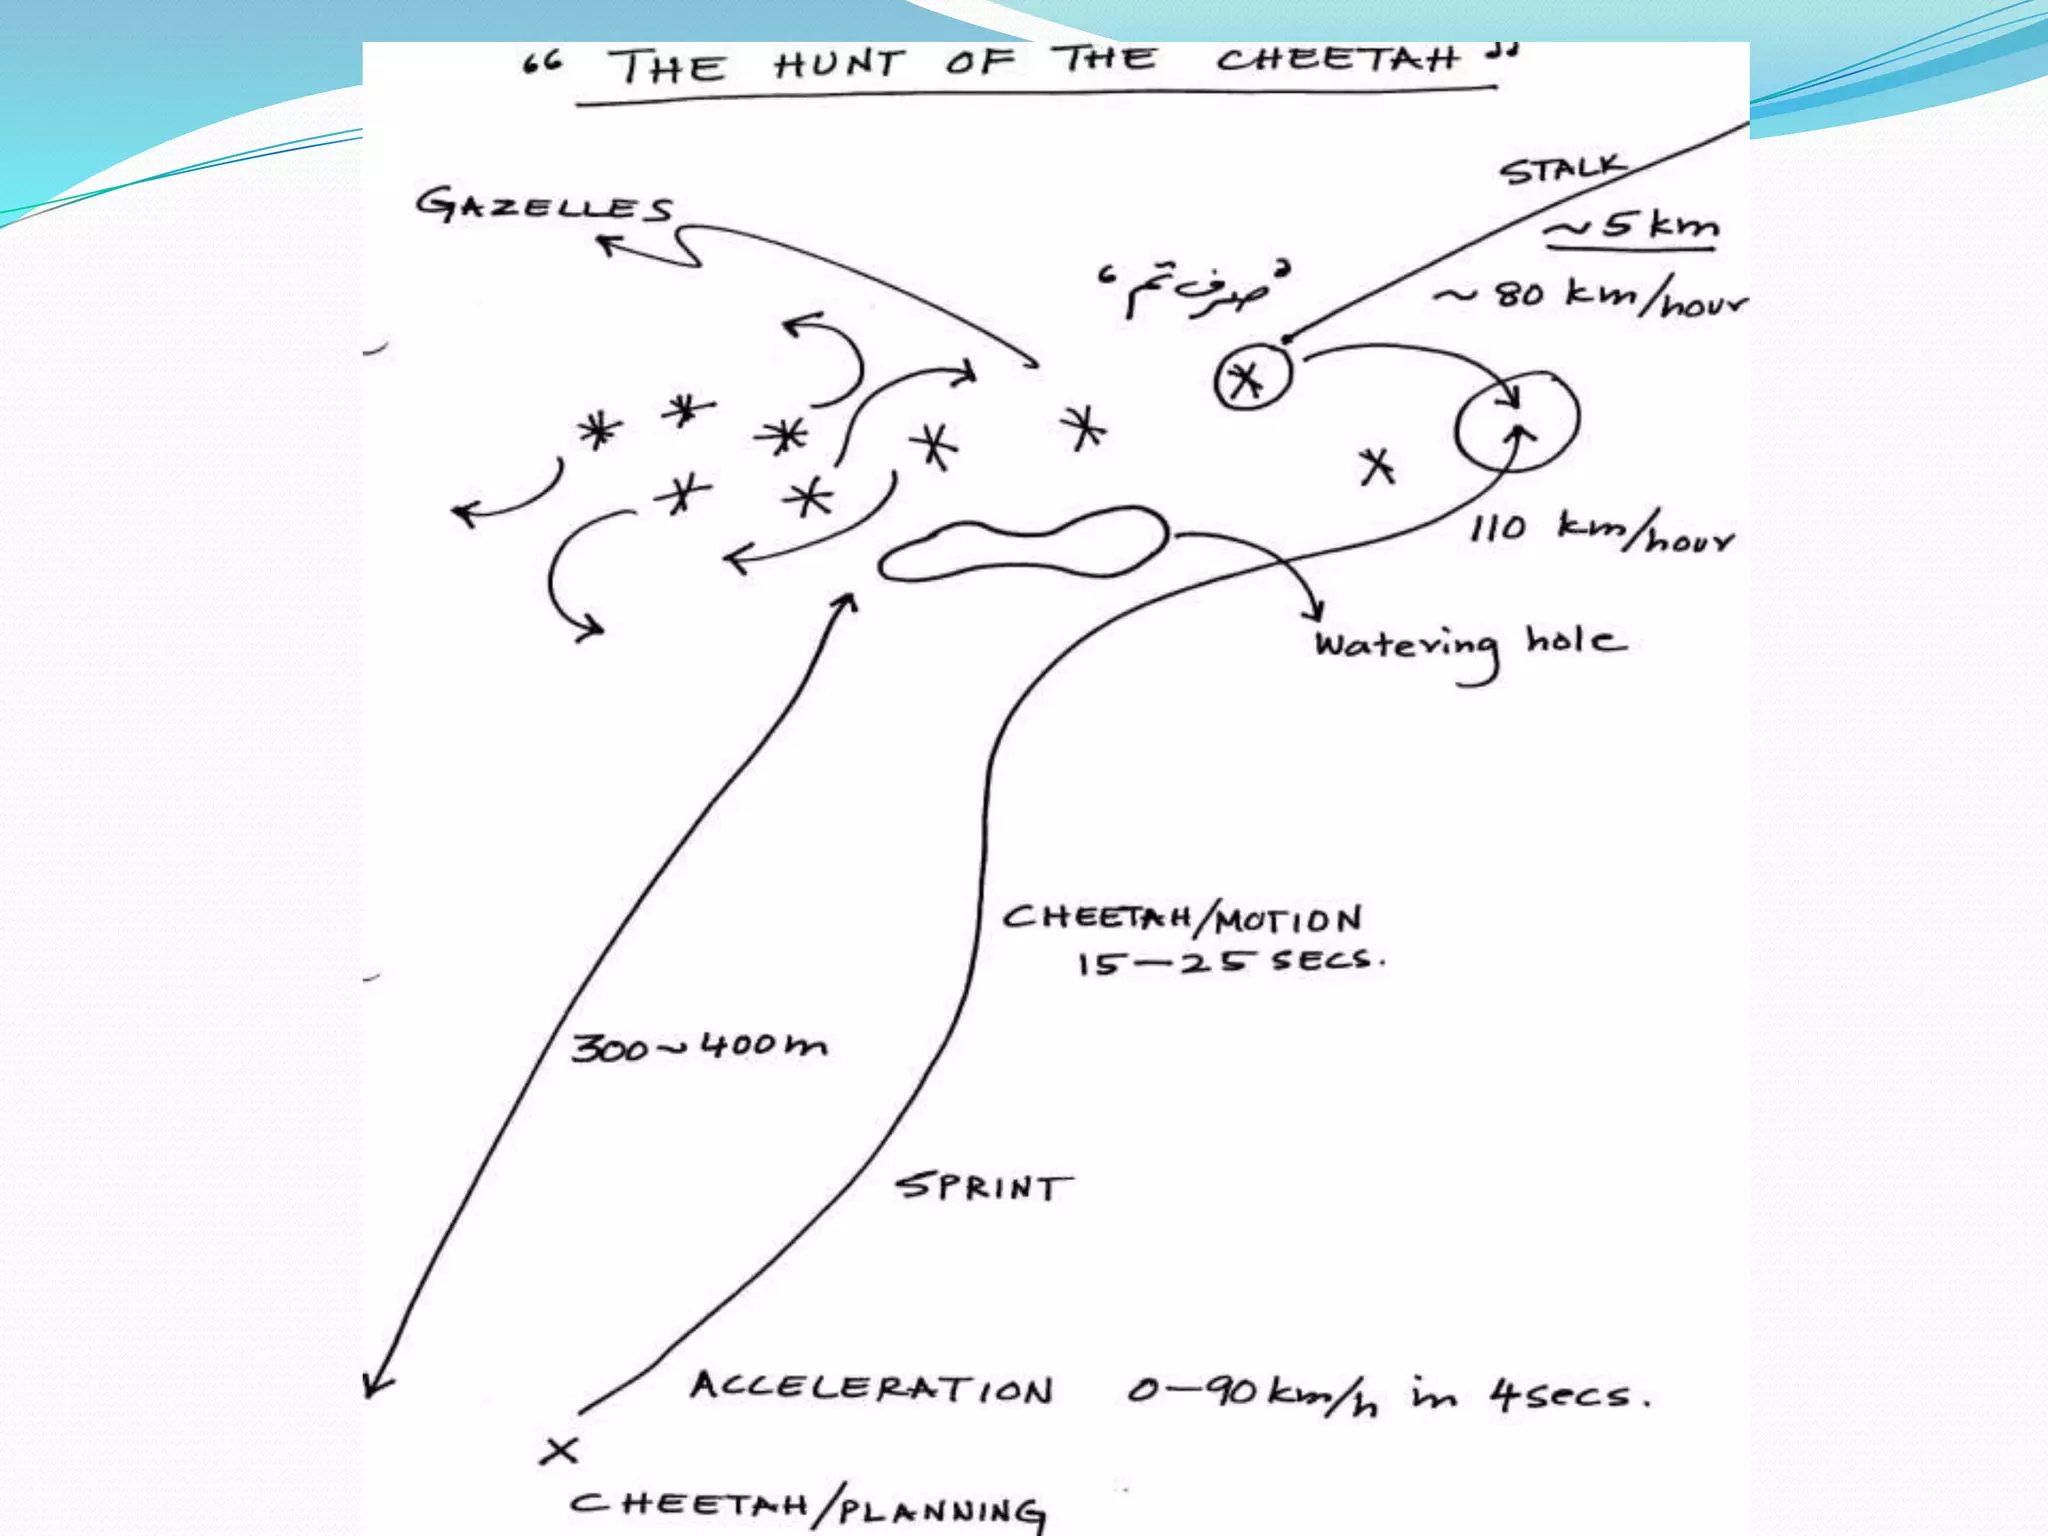 “ THE HUNT OF THE CHEETAH ”
STALK
GAZELLES
~5 km
“صرف تم”
~ 80 km/hour
110 km/hour
Watering hole
CHEETAH/MOTION
15–25 SECS.
300~400m
SPRINT
ACCELERATION 0–90km/h in 4secs.
X
CHEETAH/PLANNING